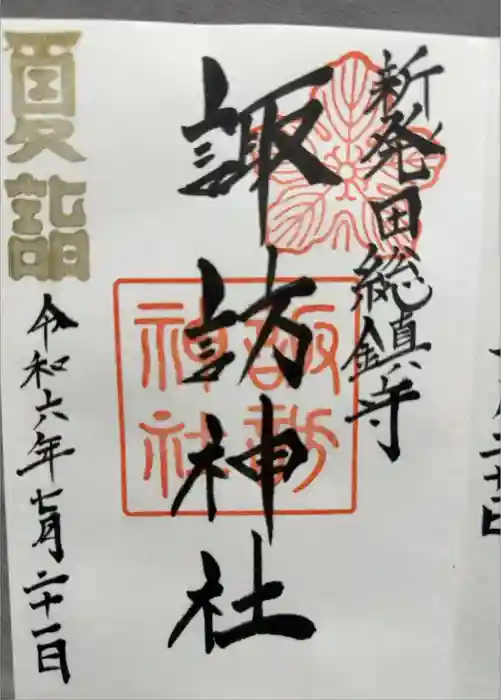 新発田総鎮守
諏訪神社
諏訪
神社
夏詣
令和六年七月二十一日